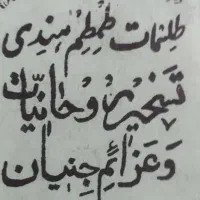 طلسمات طمطم هندی
تسخیر روحانیات
وعزائم جنیان